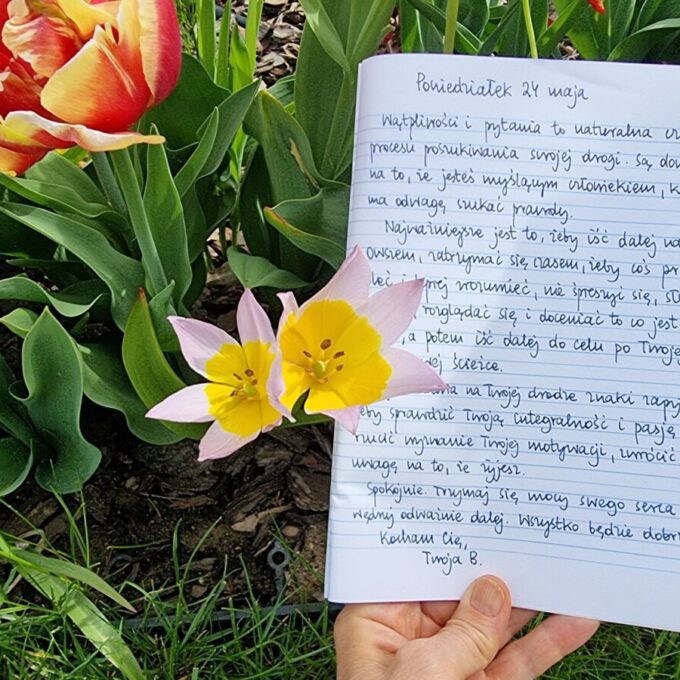 Poniedziałek 24 maja
Wątpliwości i pytania to naturalna
procesu poszukiwania swojej drogi. Są
na to, że jesteś myślącym człowiekiem,
ma odwagę szukać prawdy.
Najważniejsze jest to, żeby iść dalej
Owszem, zatrzymać się czasem, żeby coś
zrozumieć, nie śpieszyć się,
rozglądać się i doceniać to co jest
, a potem iść dalej do celu po Twojej
ścieżce.
na Twojej drodze znaki
sprawdzić Twoją integralność i pasję
wyzwanie Twojej motywacji, zwrócić
uwagę na to, że żyjesz.
Spokojnie. Trzymaj się mocy swego serca
wędruj odważnie dalej. Wszystko będzie
Kocham Cię,
Twoja B.